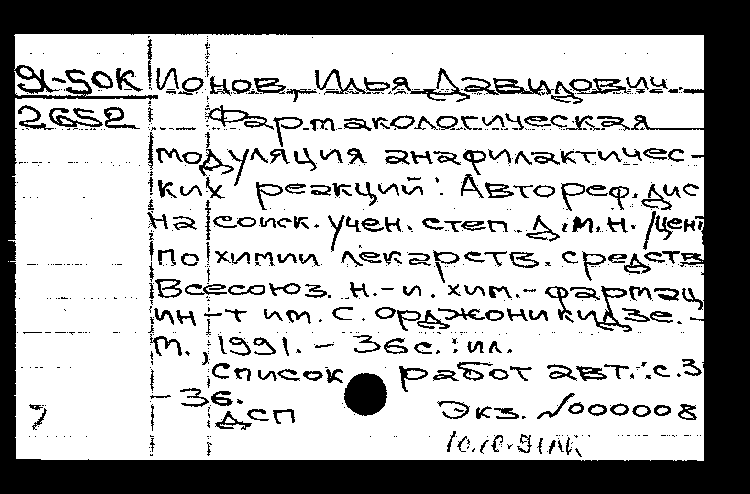 91-50К Ионов, Илья Давидович.
2652 Фармакологическая
модуляция анафилактичес-
ких реакций : Автореф. дис
на соиск. учен. степ. д.м.н. /Цент
по химии лекарств. средств
Всесоюз. н.-и. хим.-фармац
ин-т им. С. Орджоникидзе. -
М., 1991. - 36 с. : ил.
Список работ авт.: с.3
- 36.
ДСП Экз. №000008
7
10.10.91